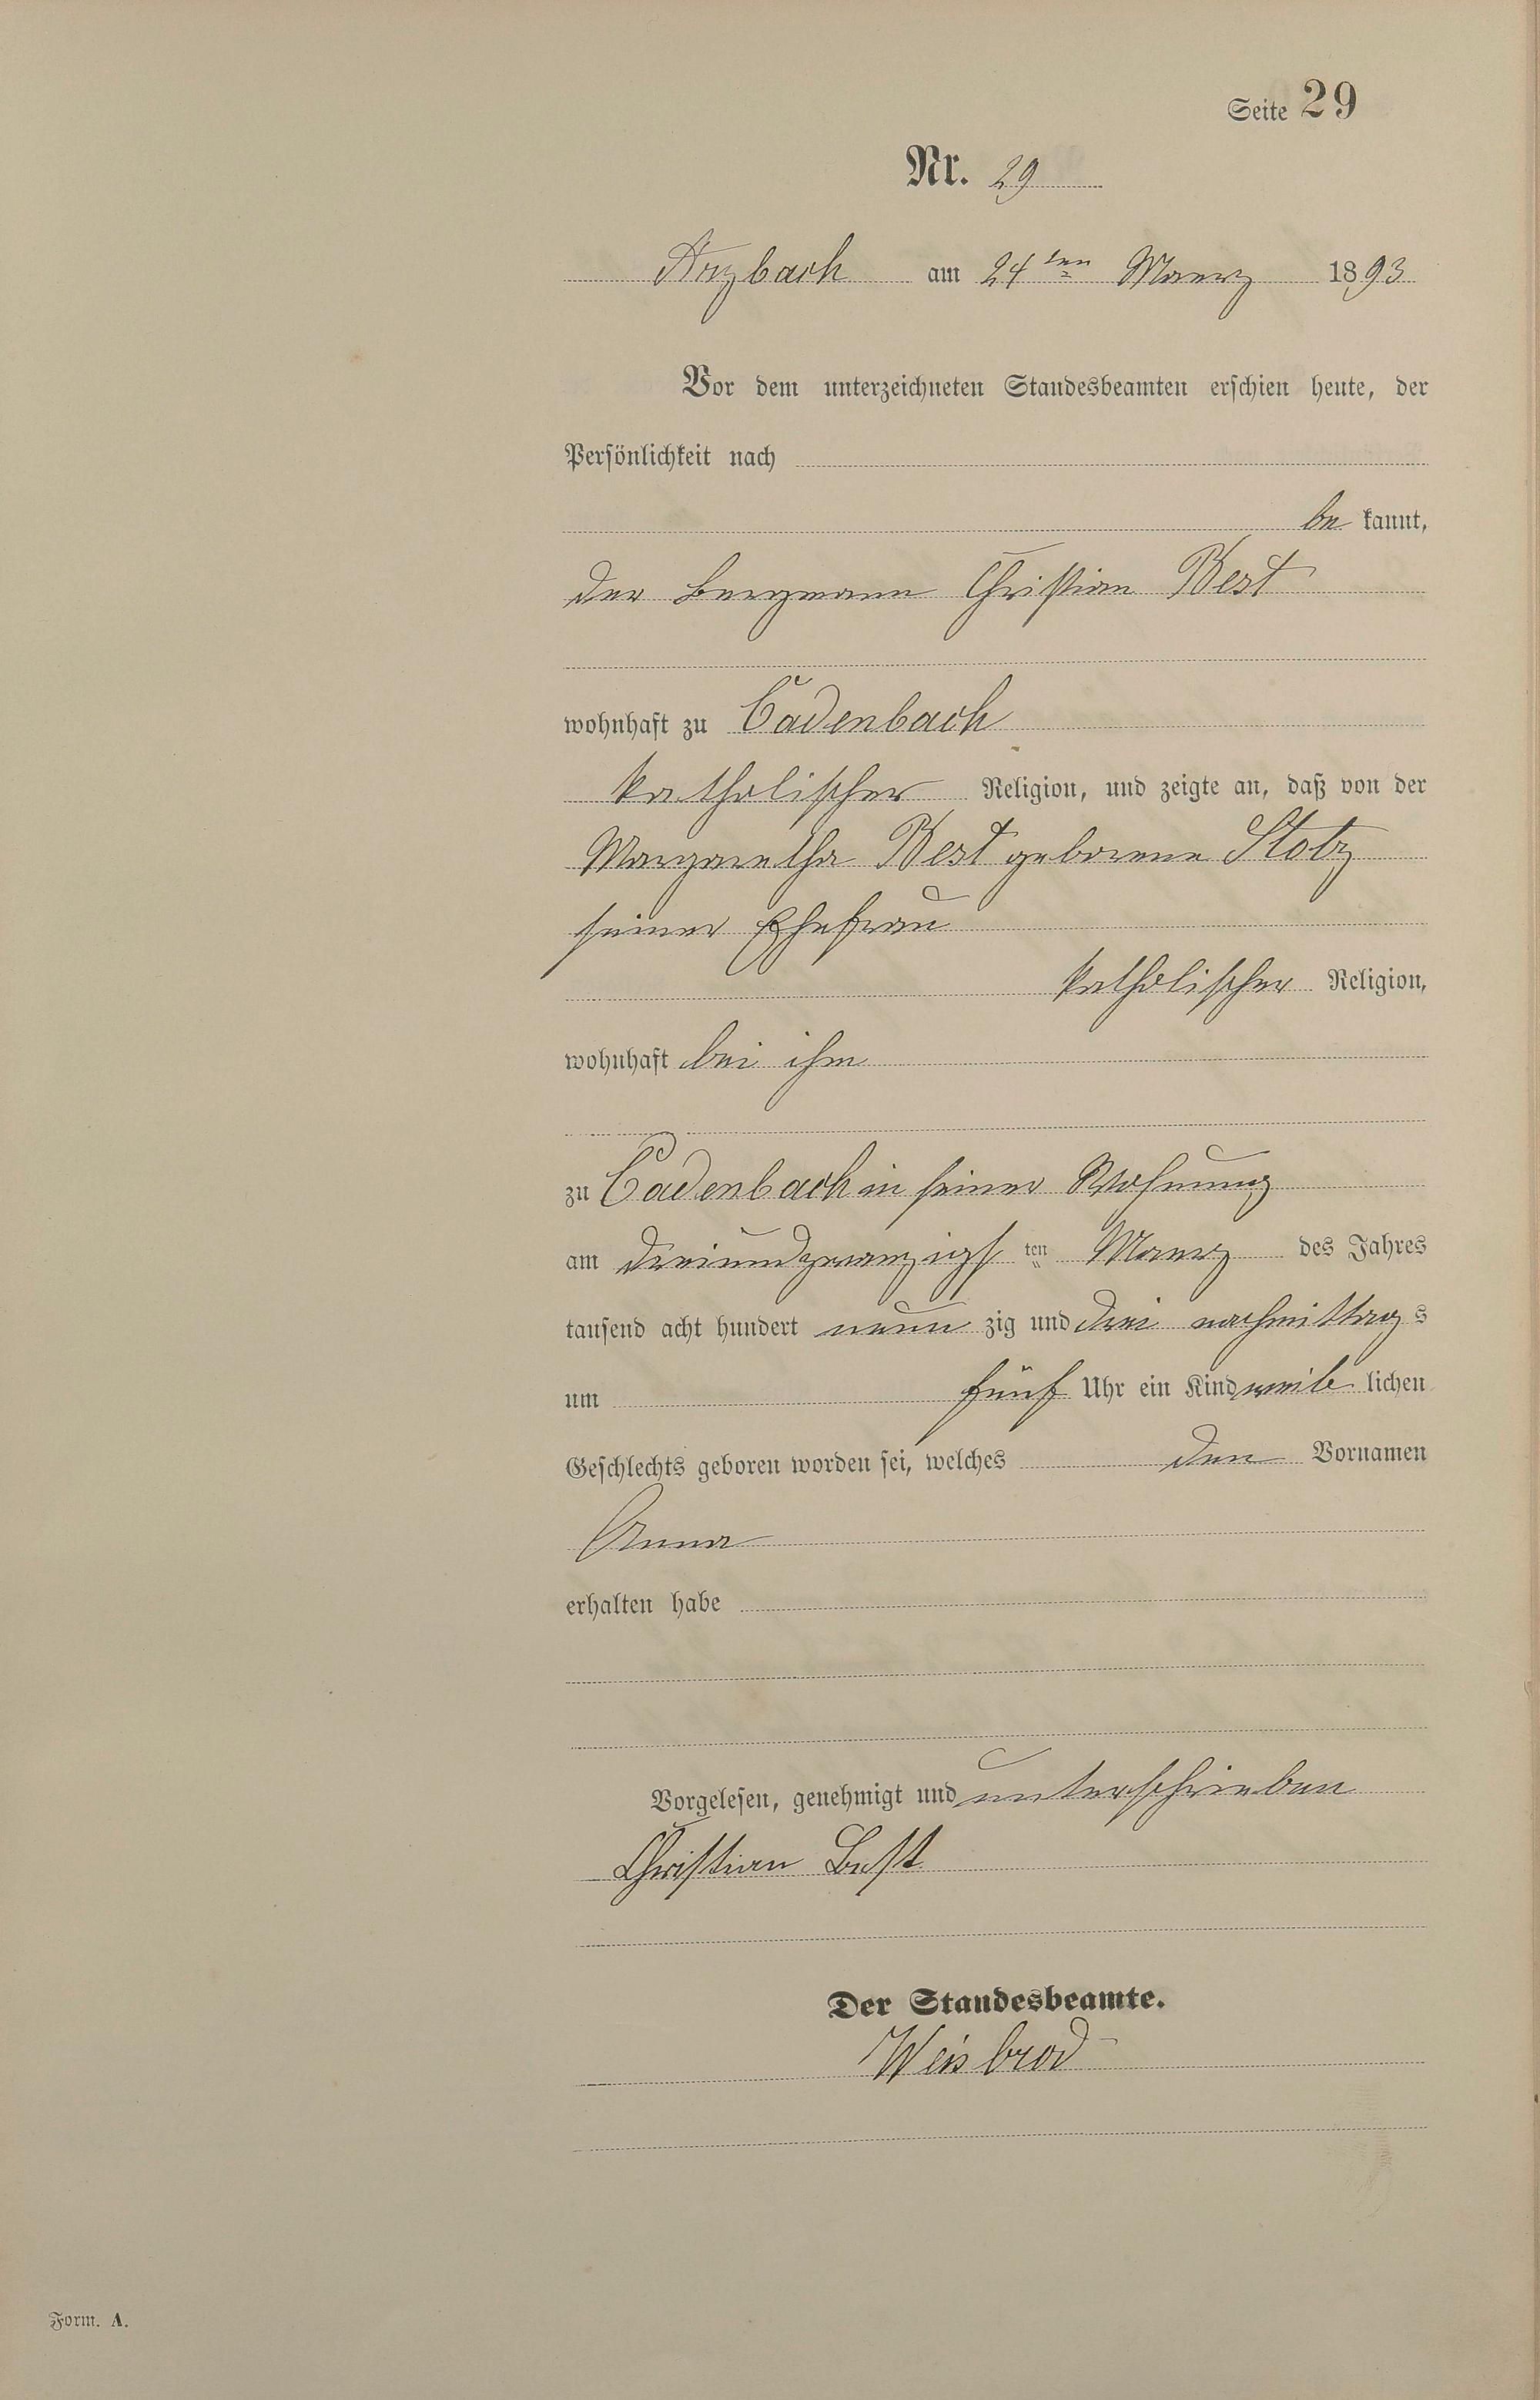 Seite 29
Nr. 29
Arzbach am 24ten Maerz 1893
Vor dem unterzeichneten Standesbeamten erschien heute, der
Persönlichkeit nach
be kannt,
der Bergmann Christian Best
wohnhaft zu Cadenbach
katholischer Religion, und zeigte an, daß von der
Margaretha Best geborene Stotz
seiner Ehefrau
katholischer Religion,
wohnhaft bei ihm
zu Cadenbach in seiner Wohnung
am dreiundzwanzigs ten Maerz des Jahres
tausend acht hundert neun zig und drei nachmittag s
um fünf Uhr ein Kind weib lichen
Geschlechts geboren worden sei, welches den Vornamen
Anna
erhalten habe
Vorgelesen, genehmigt und unterschrieben
Christian Best
Der Standesbeamte.
Weisbrod
Form. A.